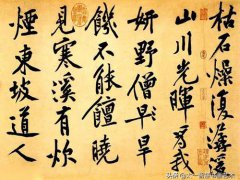 枯石燥復潺湲
山川光暉為我
妍野僧早旱
饑不能饘曉
見寒溪有炊
煙東坡道人